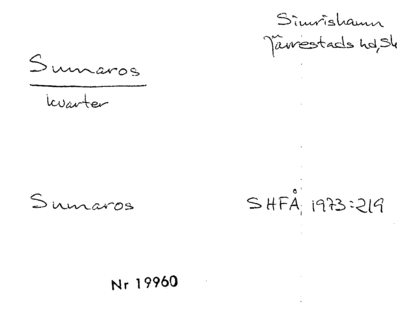 Simrishamn
Järrestads hd, Sk
Sumaros
kvarter
Sumaros
SHFÅ 1973:219
Nr 19960